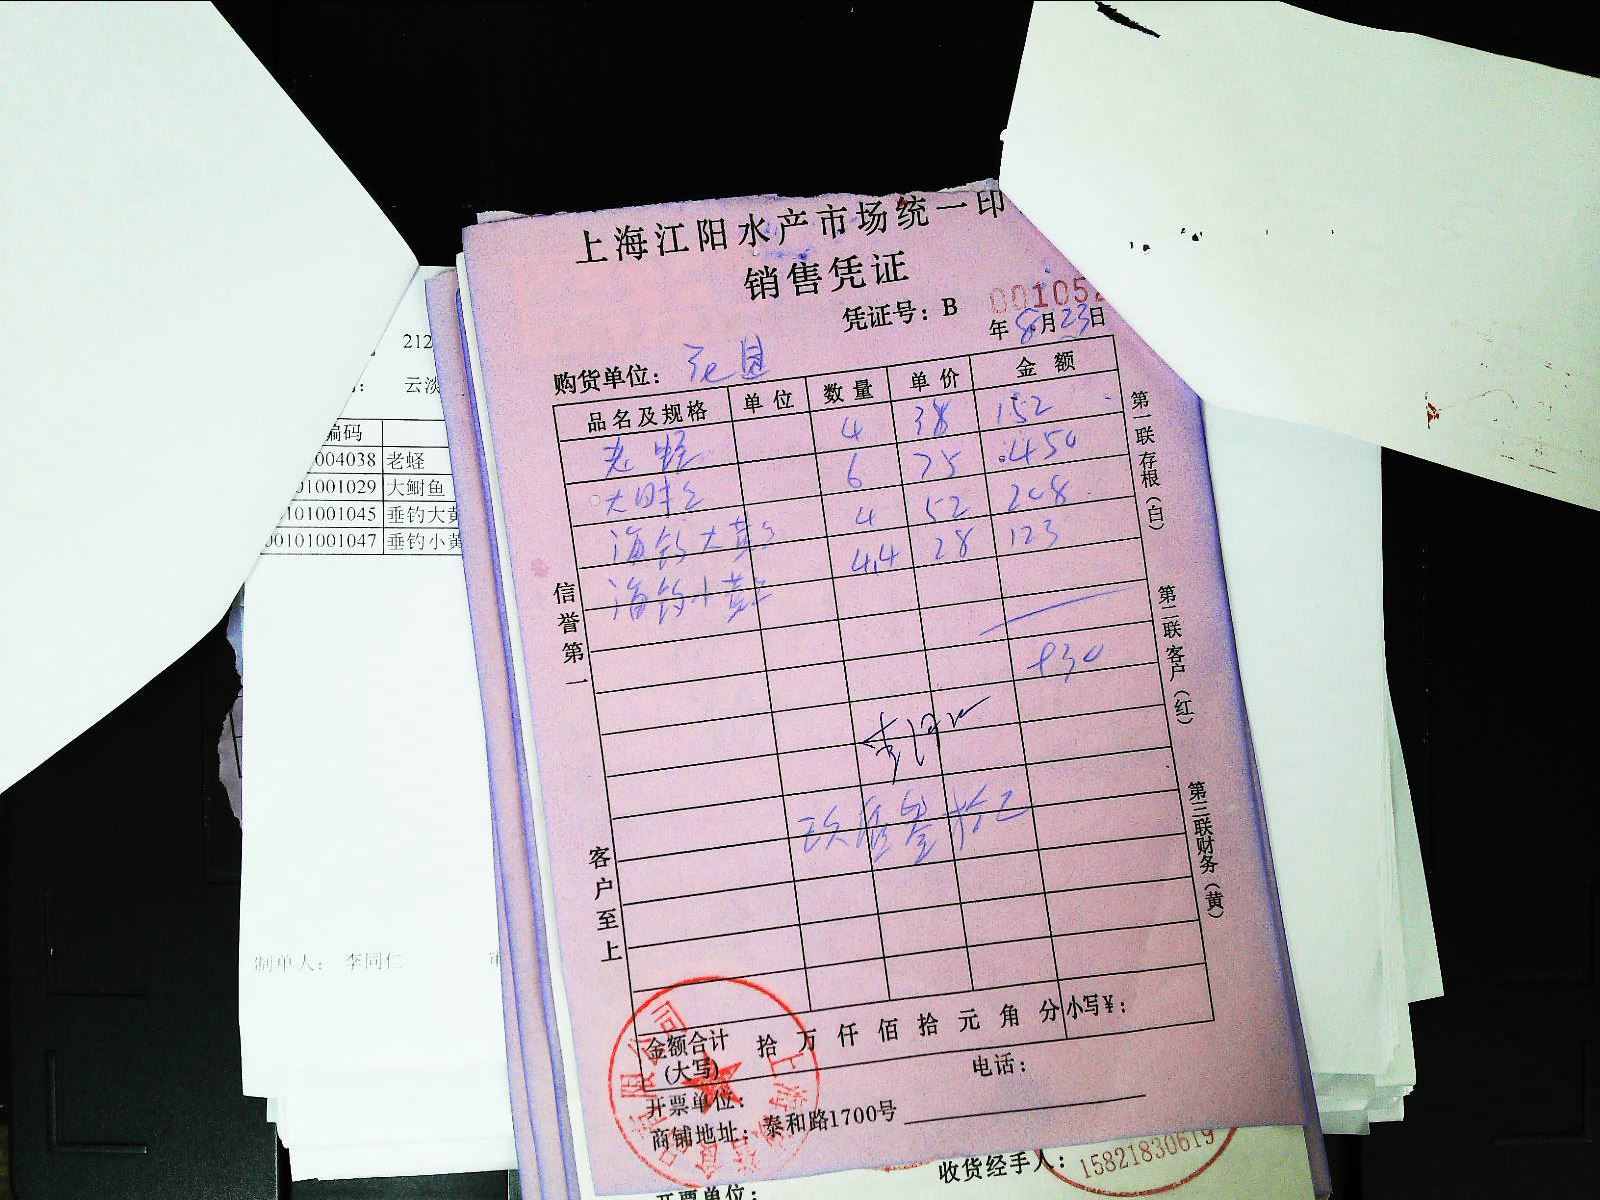 上海江阳水产市场统一印
销售凭证
凭证号：B 001052
年8月23日
购货单位：
品名及规格 单位 数量 单价 金额
老蛏 4 38 152
大鲥鱼 6 75 450
海钓大黄鱼 4 52 208
海钓小黄鱼 4.4 28 123
930
玖佰叁拾元
信誉第一
客户至上
第一联存根（白）
第二联客户（红）
第三联财务（黄）
金额合计（大写） 拾万仟佰拾元角分 小写¥：
电话：
开票单位：
商铺地址：泰和路1700号
收货经手人：
15821830619
开票单位：
212
云淡
编码
004038 老蛏
01001029 大鲥鱼
0101001045 垂钓大黄
00101001047 垂钓小黄
制单人： 李同仁